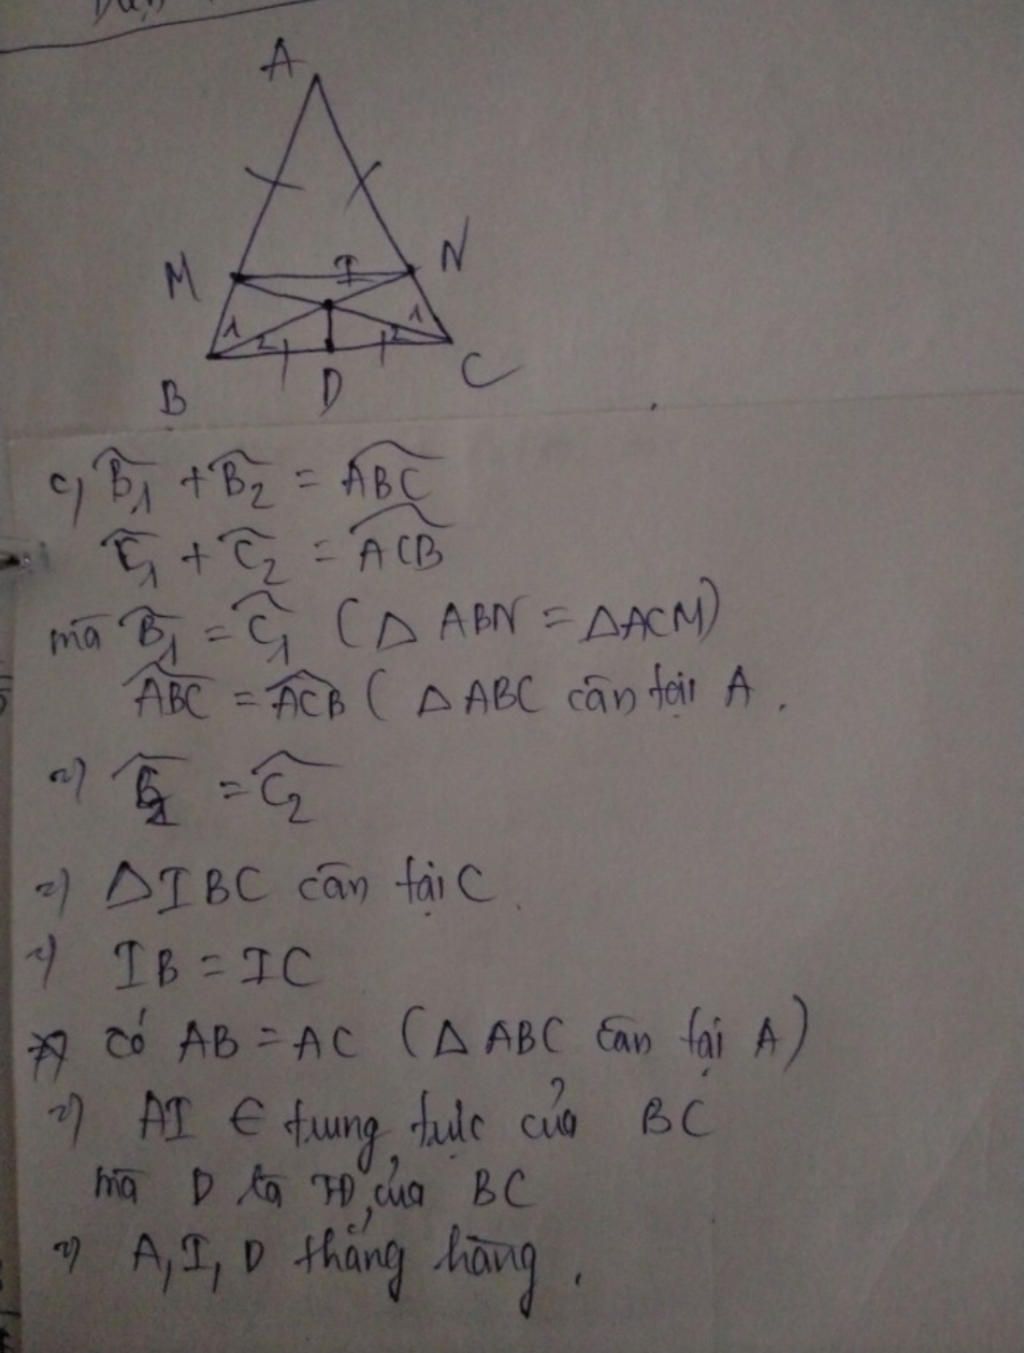 A
M
I
N
1
2
2
1
B
D
C
c, B̂₁ + B̂₂ = ABC
Ĉ₁ + Ĉ₂ = ACB
mà B̂₁ = Ĉ₁ (△ ABN = △ACM)
ABC = ACB (△ ABC cân tại A.
=) B̂₂ = Ĉ₂
=) △IBC cân tại C
=) IB = IC
có AB = AC (△ ABC cân tại A)
=) AI ∈ trung trực của BC
mà D là TĐ của BC
=) A, I, D thẳng hàng.